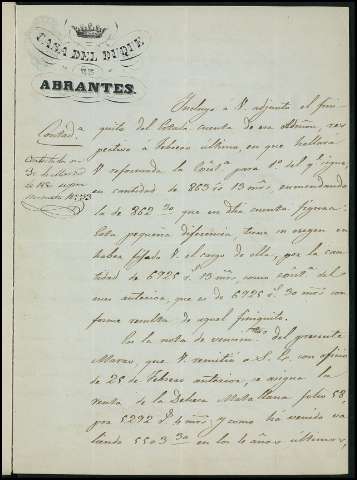 CASA DEL DUQUE
DE
ABRANTES.
Contad.ª
Incluyo á V. adjunto el fini
quito del totala cuenta de esa Admon, res
pectiva á Febrero ultimo, en que hallará
V. reformada la Exist.ª para 1.º del sig.te
en cantidad de 863 rs 13 mrs, enmendando
la de 862 30 que en dha cuenta figura
Esta pequeña diferencia, tiene su origen en
haber fijado V. el cargo de ella, por la can
tidad de 6925 rs 13 mrs, como exist.ª del
mes anterior, que es de 6925 rs 30 mrs con
forme resulta de aquel finiquito.
En la nota de vencim.tos del presente
Marzo que V. remitió á S. E. con oficio
de 25 de Febrero anterior, se asigna la
renta de la Dehesa Matallana folio 58,
por 5292 rs 4 mrs, y como há venido va
liendo 5503 30 en los 10 años ultimos,